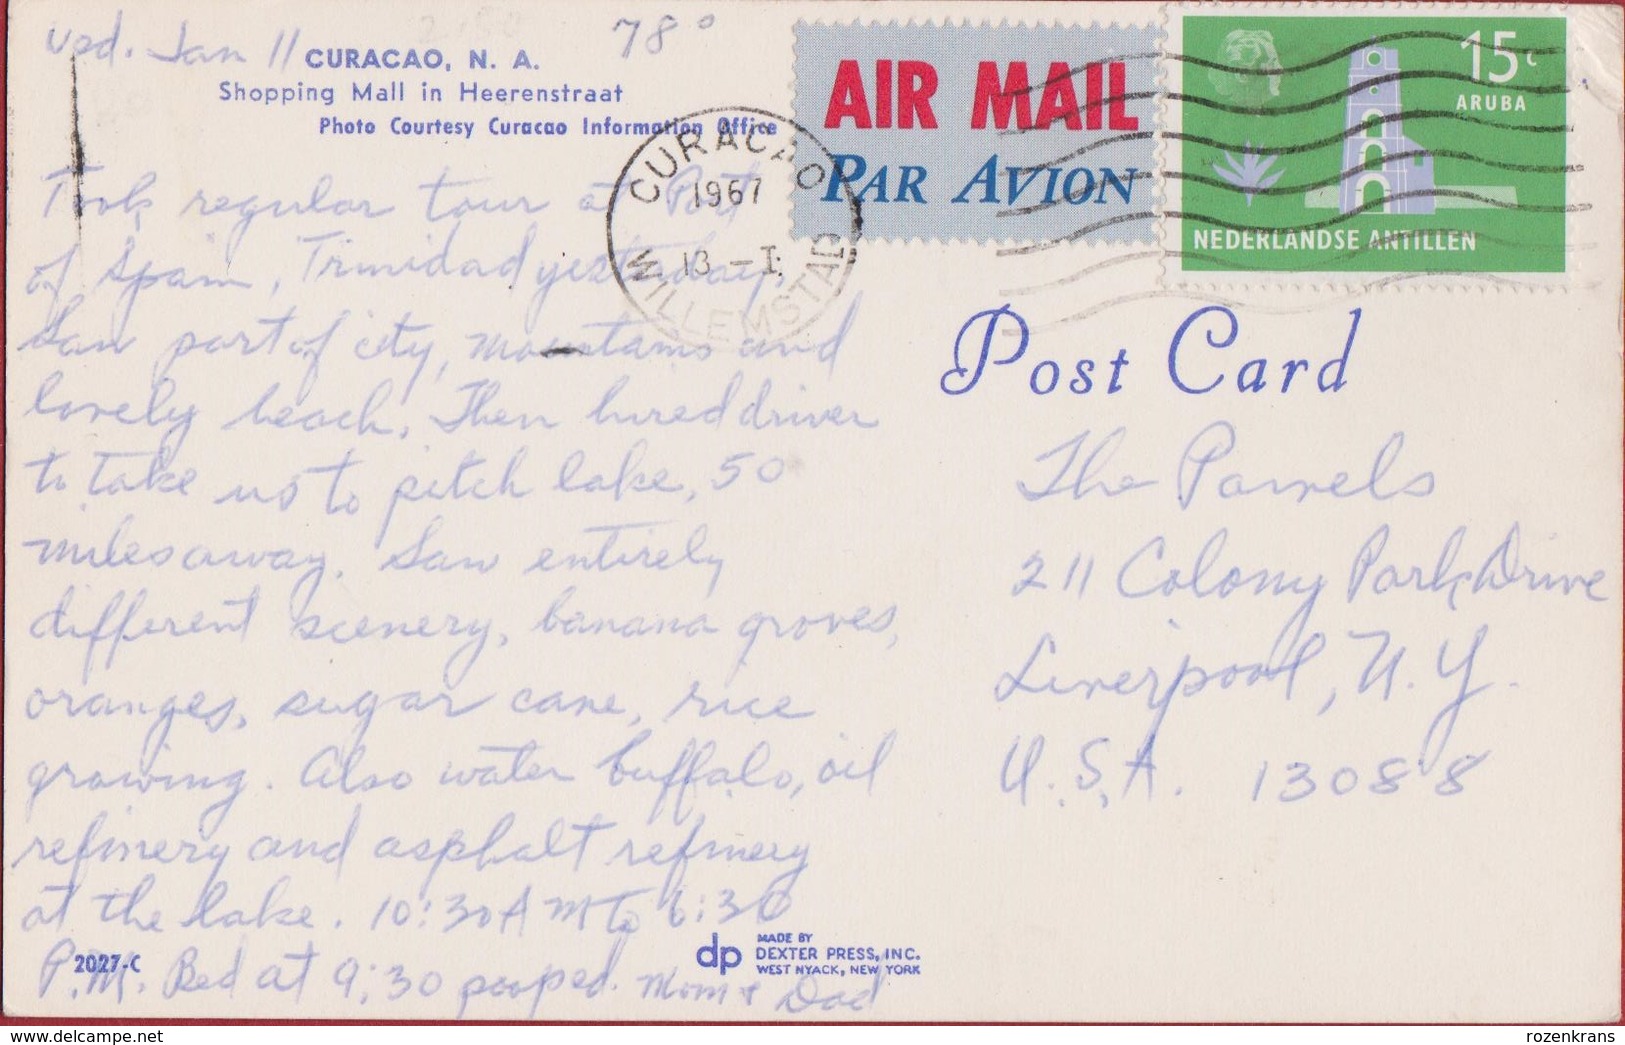 Wed. Jan 11
78°
CURACAO, N. A.
Shopping Mall in Heerenstraat
Photo Courtesy Curacao Information Office
Took regular tour at Port
of Spain, Trinidad yesterday.
Saw part of city, mountains and
lovely beach. Then hired driver
to take us to pitch lake, 50
miles away. Saw entirely
different scenery, banana groves,
oranges, sugar cane, rice
growing. Also water buffalo, oil
refinery and asphalt refinery
at the lake. 10:30 AM to 6:30
P.M. Bed at 9:30 pooped. Mom & Dad
2027-C
dp MADE BY
DEXTER PRESS, INC.
WEST NYACK, NEW YORK
CURACAO
1967
13 -I
WILLEMSTAD
AIR MAIL
PAR AVION
15c
ARUBA
NEDERLANDSE ANTILLEN
Post Card
The Parrels
211 Colony Park Drive
Liverpool, N.Y.
U.S.A. 13088
© www.delcampe.net
rozenkrans